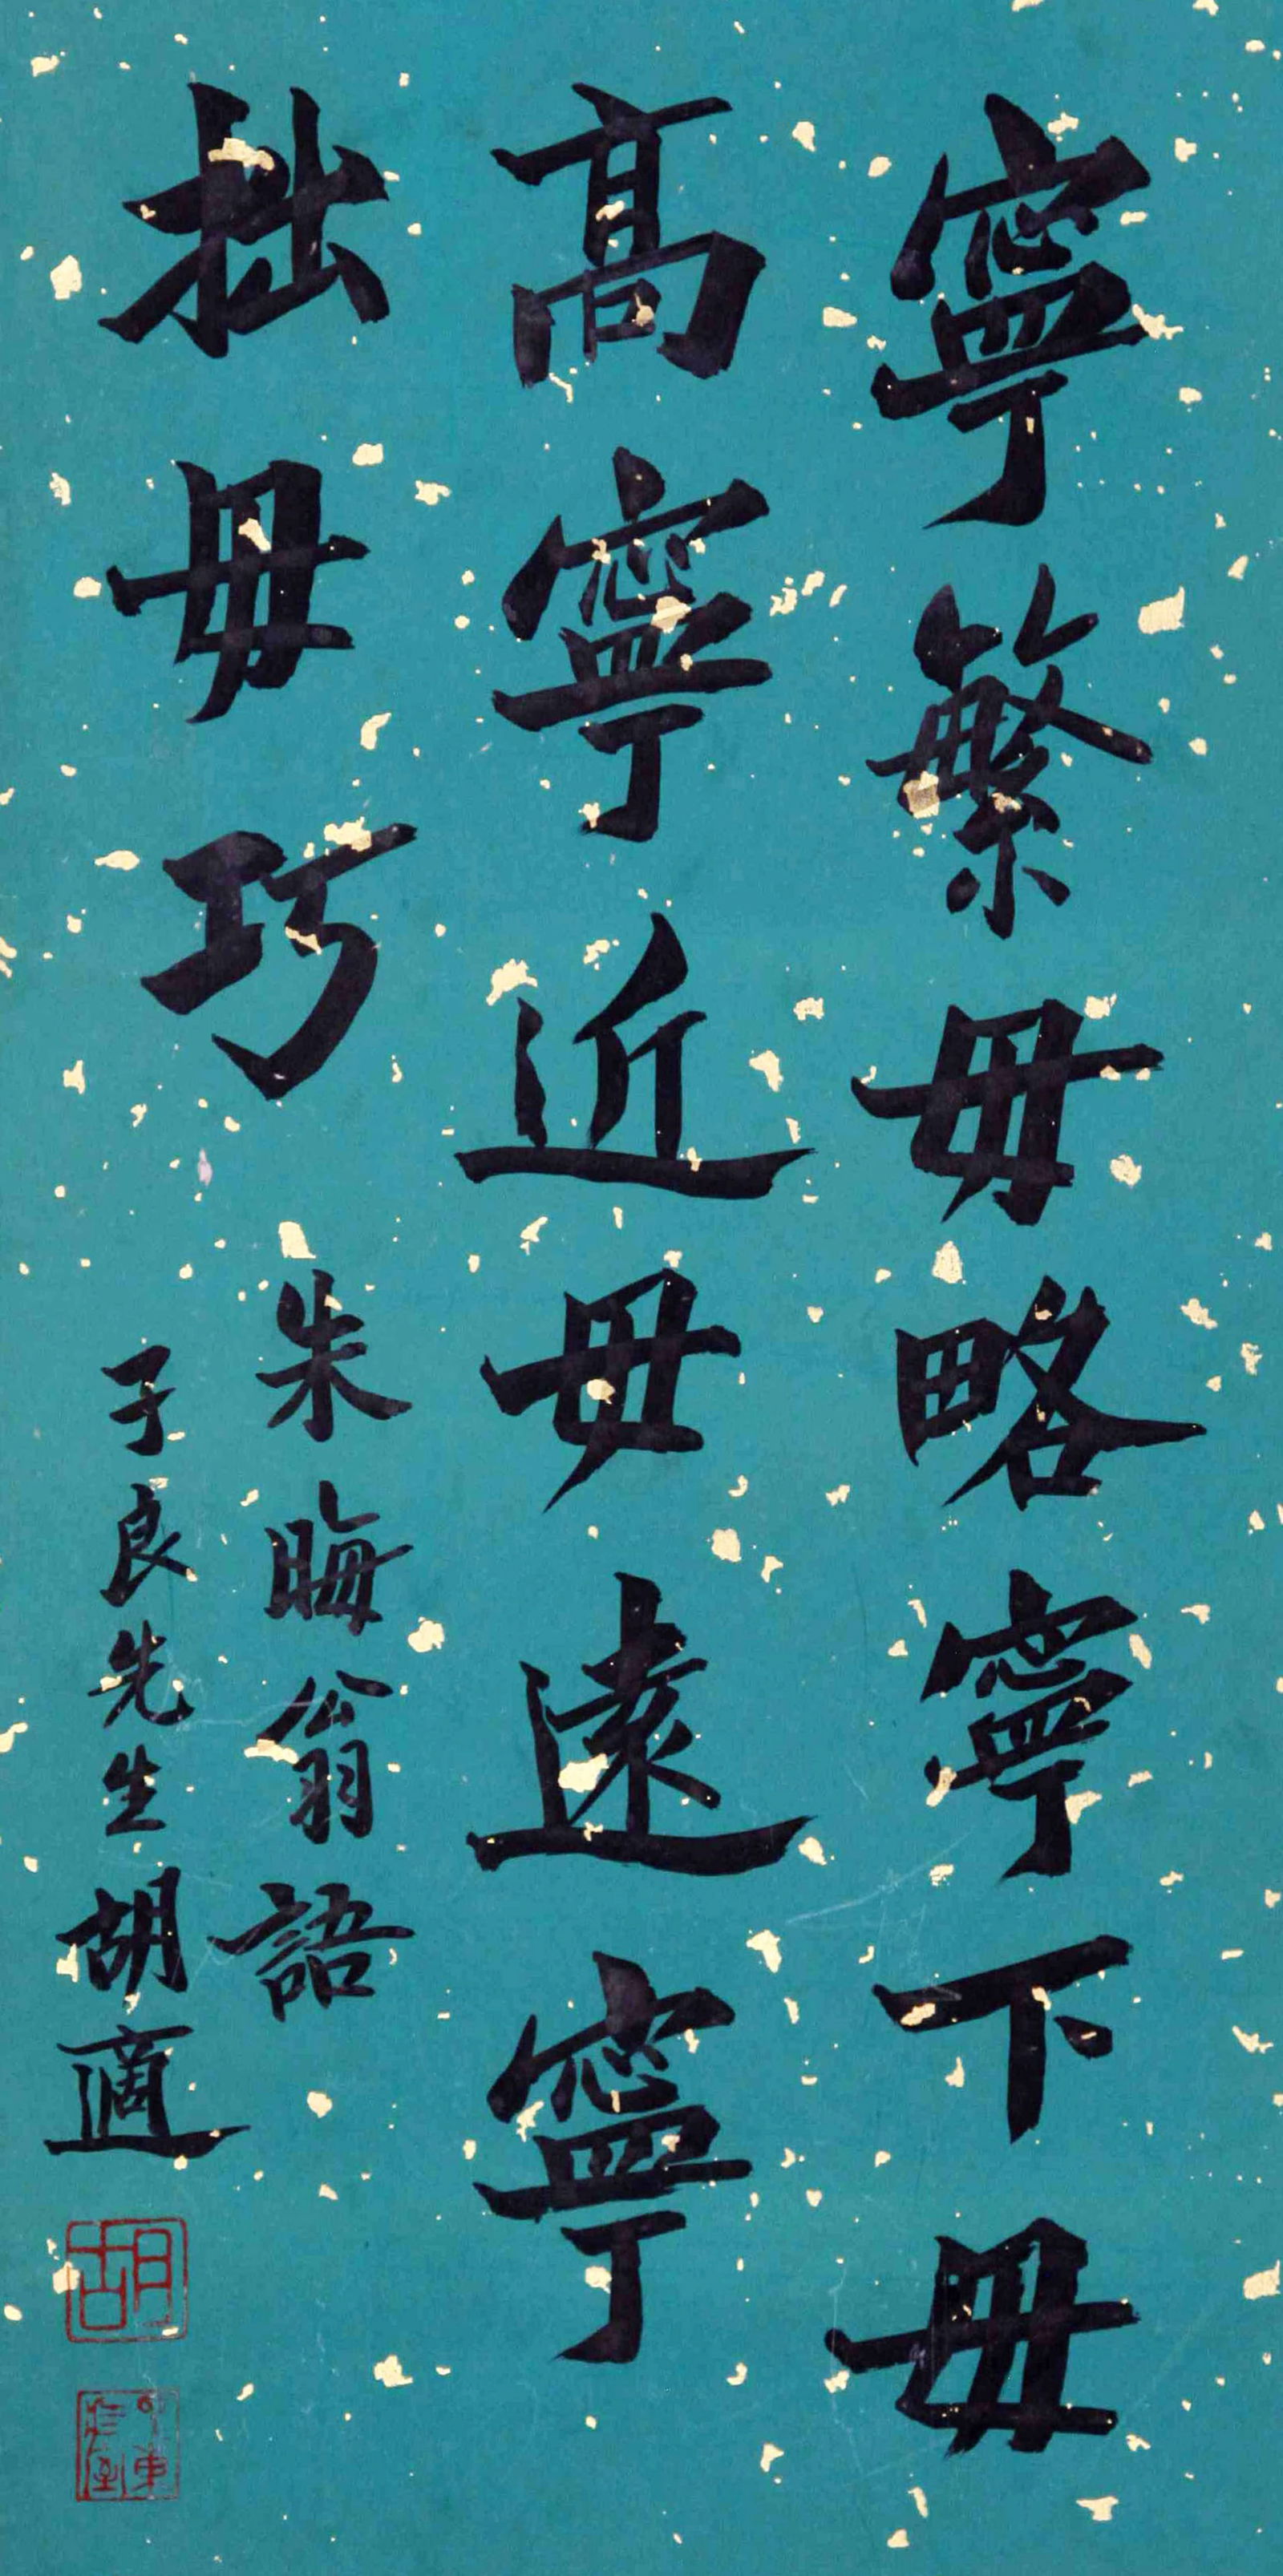 寧繁毋略寧下毋
高寧近毋遠寧
拙毋巧
朱晦翁語
子良先生
胡適
胡